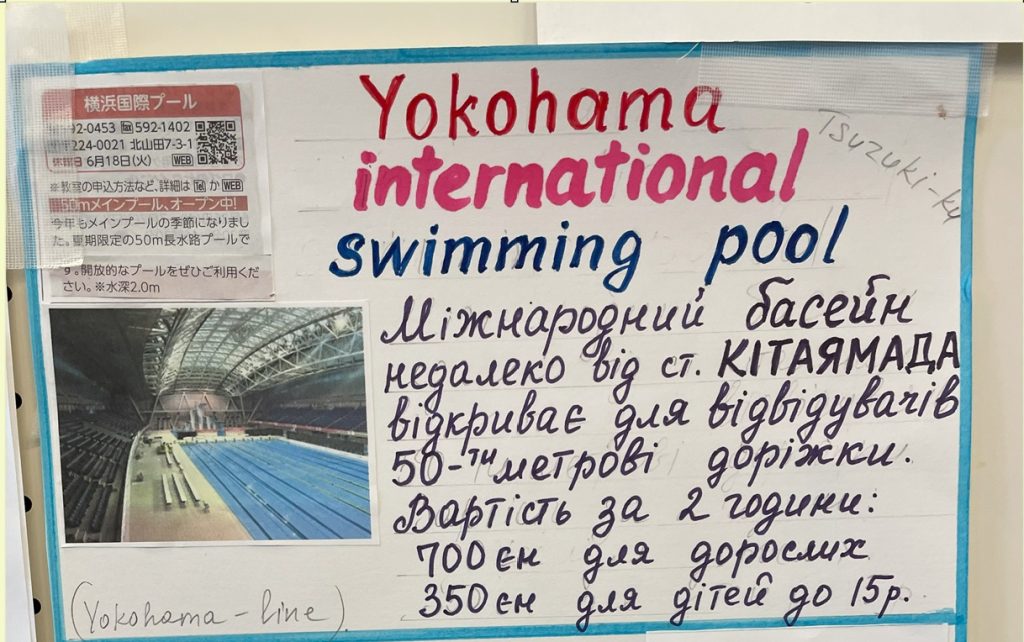 横浜国際プール
592-1402
224-0021 北山田7-3-1
休館日 6月18日(火) WEB
※教室の申込方法など、詳細は か WEB
50mメインプール、オープン中!
今年もメインプールの季節になりまし
た。夏期限定の50m長水路プールで
す。開放的なプールをぜひご利用くだ
さい。※水深2.0m
Yokohama
international
swimming pool
Tsuzuki-ku
Міжнародний басейн
недалеко від ст. КІТАЯМАДА
відкриває для відвідувачів
50-ти метрові доріжки.
Вартість за 2 години:
700 єн для дорослих
350 єн для дітей до 15р.
(Yokohama-line)